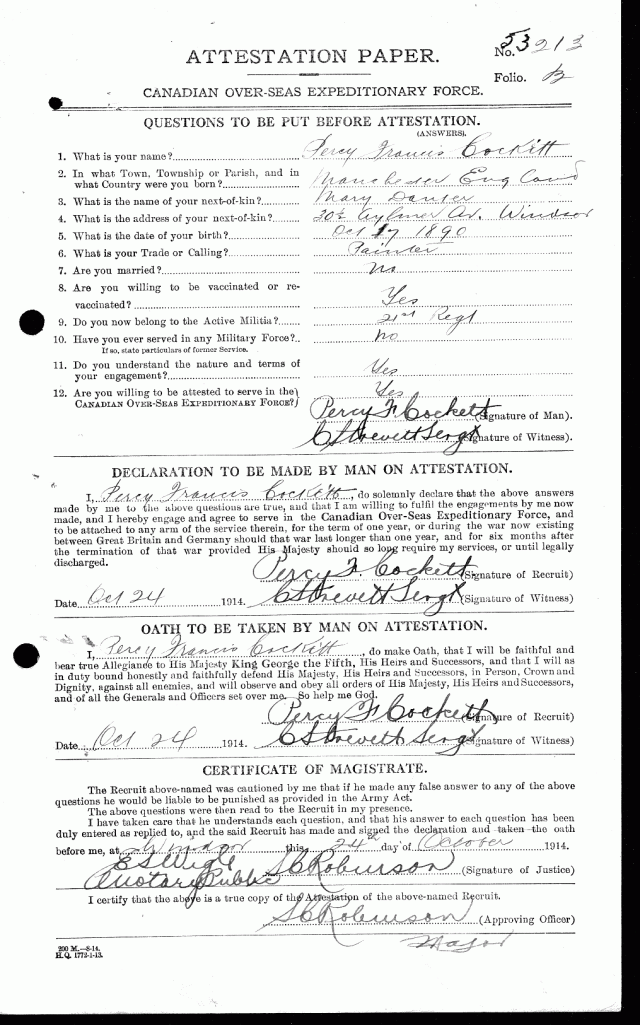 No. 53213
ATTESTATION PAPER.
Folio. B
CANADIAN OVER-SEAS EXPEDITIONARY FORCE.
QUESTIONS TO BE PUT BEFORE ATTESTATION.
(ANSWERS).
1. What is your name? Percy Francis Cockett
2. In what Town, Township or Parish, and in
what Country were you born? Manchester England
3. What is the name of your next-of-kin? Mary
4. What is the address of your next-of-kin? Aylmer Av. Windsor
5. What is the date of your birth? Oct 17 1890
6. What is your Trade or Calling? Painter
7. Are you married? No
8. Are you willing to be vaccinated or re-
vaccinated? Yes
9. Do you now belong to the Active Militia? 21st Regt
10. Have you ever served in any Military Force? No
If so, state particulars of former Service.
11. Do you understand the nature and terms of
your engagement? Yes
12. Are you willing to be attested to serve in the
CANADIAN OVER-SEAS EXPEDITIONARY FORCE? Yes
Percy F. Cockett (Signature of Man).
Sergt (Signature of Witness).
DECLARATION TO BE MADE BY MAN ON ATTESTATION.
I, Percy Francis Cockett, do solemnly declare that the above answers
made by me to the above questions are true, and that I am willing to fulfil the engagements by me now
made, and I hereby engage and agree to serve in the Canadian Over-Seas Expeditionary Force, and
to be attached to any arm of the service therein, for the term of one year, or during the war now existing
between Great Britain and Germany should that war last longer than one year, and for six months after
the termination of that war provided His Majesty should so long require my services, or until legally
discharged.
Percy F. Cockett (Signature of Recruit)
Date Oct 24 1914. Sergt (Signature of Witness)
OATH TO BE TAKEN BY MAN ON ATTESTATION.
I, Percy Francis Cockett, do make Oath, that I will be faithful and
bear true Allegiance to His Majesty King George the Fifth, His Heirs and Successors, and that I will as
in duty bound honestly and faithfully defend His Majesty, His Heirs and Successors, in Person, Crown and
Dignity, against all enemies, and will observe and obey all orders of His Majesty, His Heirs and Successors,
and of all the Generals and Officers set over me. So help me God.
Percy F. Cockett (Signature of Recruit)
Date Oct 24 1914. Sergt (Signature of Witness)
CERTIFICATE OF MAGISTRATE.
The Recruit above-named was cautioned by me that if he made any false answer to any of the above
questions he would be liable to be punished as provided in the Army Act.
The above questions were then read to the Recruit in my presence.
I have taken care that he understands each question, and that his answer to each question has been
duly entered as replied to, and the said Recruit has made and signed the declaration and taken the oath
before me, at Windsor this 24th day of October 1914.
E S Wigle Robinson (Signature of Justice)
A notary Public
I certify that the above is a true copy of the Attestation of the above-named Recruit.
Robinson (Approving Officer)
Major
200 M.—8-14.
H.Q. 1772-1-13.